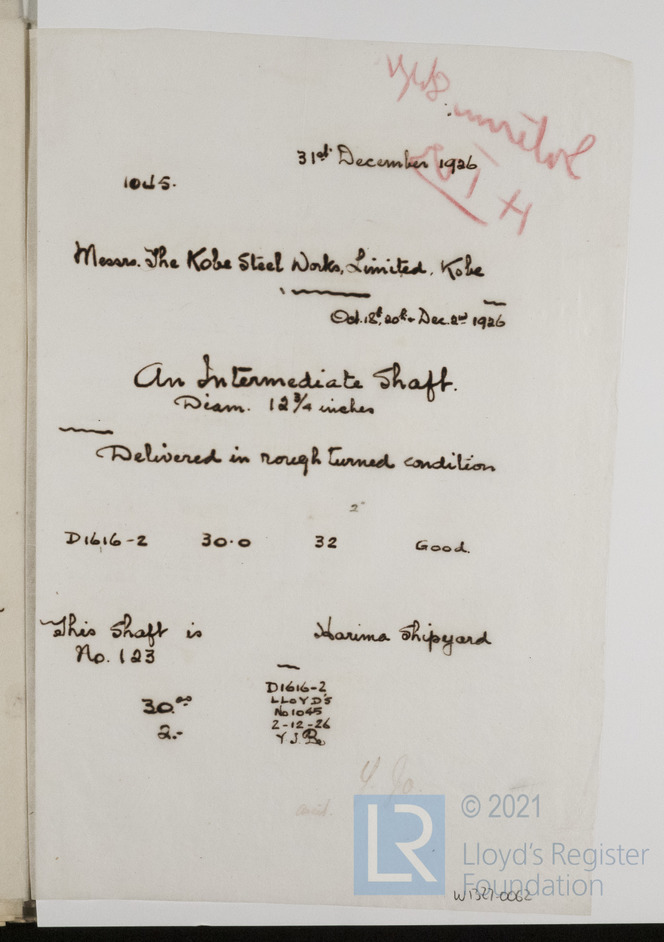 31st December 1926
1045.
Messrs. The Kobe Steel Works, Limited, Kobe
Oct. 18th, 20th & Dec. 2nd 1926
An Intermediate Shaft.
Diam. 12 3/4 inches
Delivered in rough turned condition
2"
D1616-2 30.0 32 Good.
This Shaft is Harima Shipyard
No. 123
D1616-2
LLOYD'S
30.00 No 1045
2.- 2-12-26
LR
© 2021
Lloyd's Register
Foundation
W1327-0062